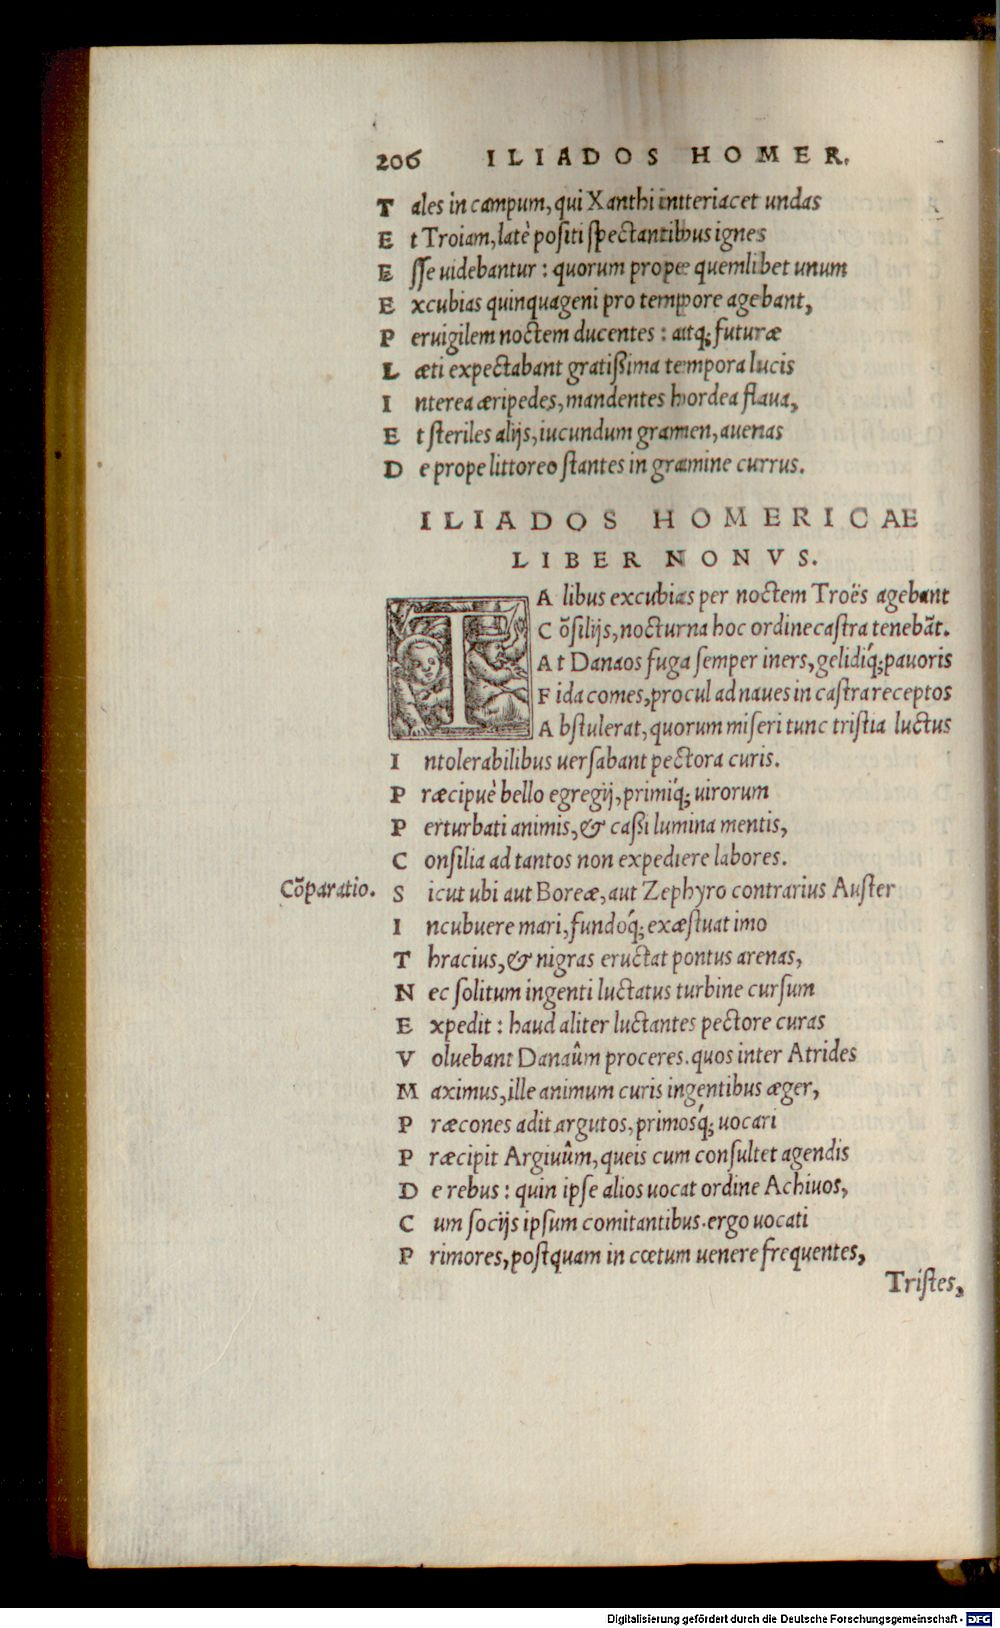 206 ILIADOS HOMER.
Tales in campum, qui Xanthi interiacet undas
Et Troiam, latè positi spectantibus ignes
Esse uidebantur : quorum prope quemlibet unum
Excubias quinquageni pro tempore agebant,
Peruigilem noctem ducentes : atq; futuræ
Læti expectabant gratißima tempora lucis
Interea æripedes, mandentes hordea flaua,
Et steriles alijs, iucundum gramen, auenas
De prope littoreo stantes in gramine currus.
ILIADOS HOMERICAE
LIBER NONVS.
TAlibus excubias per noctem Troës agebant
Cõsilijs, nocturna hoc ordine castra tenebãt.
At Danaos fuga semper iners, gelidiq́; pauoris
Fida comes, procul ad naues in castra receptos
Abstulerat, quorum miseri tunc tristia luctus
Intolerabilibus uersabant pectora curis.
Præcipuè bello egregij, primiq́; uirorum
Perturbati animis, & caßi lumina mentis,
Consilia ad tantos non expediere labores.
Cõparatio. Sicut ubi aut Boreæ, aut Zephyro contrarius Auster
Incubuere mari, fundoq́; exæstuat imo
Thracius, & nigras eructat pontus arenas,
Nec solitum ingenti luctatus turbine cursum
Expedit : haud aliter luctantes pectore curas
Voluebant Danaûm proceres. quos inter Atrides
Maximus, ille animum curis ingentibus æger,
Præcones adit argutos, primosq́; uocari
Præcipit Argiuûm, queis cum consultet agendis
De rebus : quin ipse alios uocat ordine Achiuos,
Cum socijs ipsum comitantibus. ergo uocati
Primores, postquam in cœtum uenere frequentes,
Tristes,
Digitalisierung gefördert durch die Deutsche Forschungsgemeinschaft - DFG